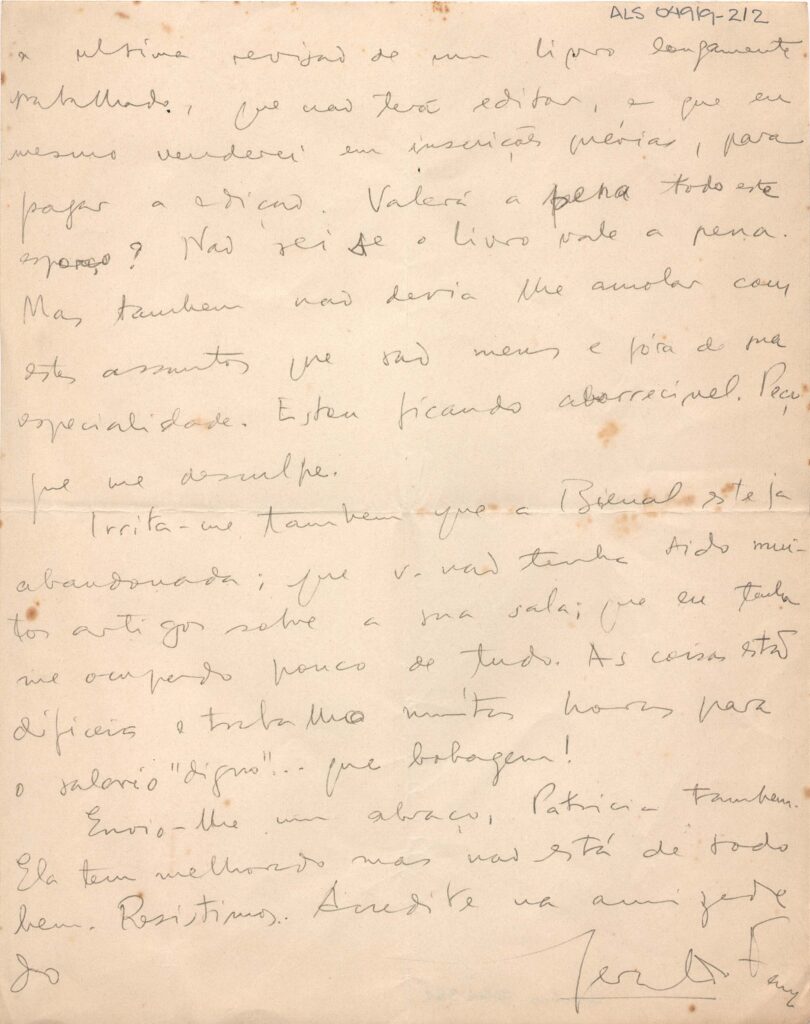 ALS 04919-2/2
a ultima revisão de um livro longamente
trabalhado, que não terá editor, e que eu
mesmo venderei em inscrições prévias, para
pagar a edicão. Valerá a pena todo este
esporço? Não sei se o livro vale a pena.
Mas tambem não devia lhe amolar com
estes assuntos que são meus e fóra de sua
especialidade. Estou ficando aborrecivel. Peço
que me desculpe.
Irrita-me tambem que a Bienal esteja
abandonada; que v. não tenha tido mui-
tos artigos sobre a sua sala; que eu tenha
me ocupado pouco de tudo. As coisas estão
dificeis e trabalho muitas horas para
o salario "digno"... que bobagem!
Envio-lhe um abraço, Patricia tambem.
Ela tem melhorado mas não está de todo
bem. Resistimos. Acredite na amizade
do
Geraldo Ferraz